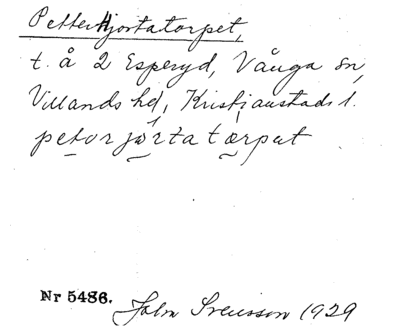 Petter Hjortatorpet,
t. å 2 Esperyd, Vånga sn,
Villands hd, Kristianstads l.
petor jørta tørput
Nr 5486. John Svensson 1929